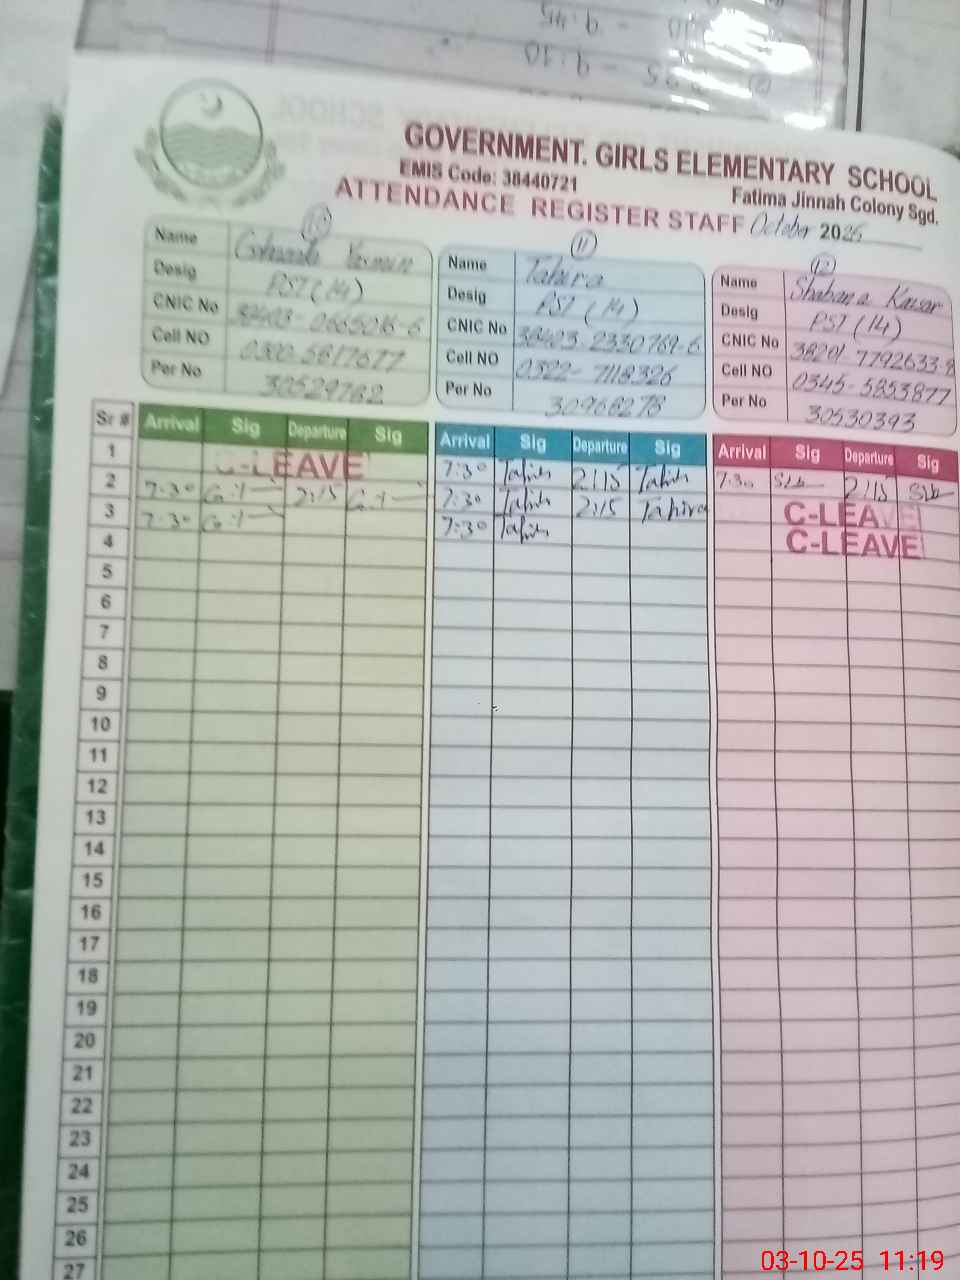 GOVERNMENT. GIRLS ELEMENTARY SCHOOL
EMIS Code: 38440721
Fatima Jinnah Colony Sgd.
ATTENDANCE REGISTER STAFF October 2025
10
Name Yasmeen
Desig PST (14)
CNIC No 38403-0665016-6
Cell NO 0300-5817677
Per No 30529762
11
Name Tahira
Desig PST (14)
CNIC No 38403-2330769-6
Cell NO 0322-7118326
Per No 30968278
12
Name Shabana Kausar
Desig PST (14)
CNIC No 38201-7792633-8
Cell NO 0345-5853877
Per No 30530393
Sr # Arrival Sig Departure Sig Arrival Sig Departure Sig Arrival Sig Departure Sig
1 C-LEAVE 7:30 Tahira 2:15 Tahira 7:30 2:15
2 7:30 2:15 7:30 Tahira 2:15 Tahira C-LEAVE
3 7:30 7:30 Tahira C-LEAVE
4
5
6
7
8
9
10
11
12
13
14
15
16
17
18
19
20
21
22
23
24
25
26
27
03-10-25 11:19